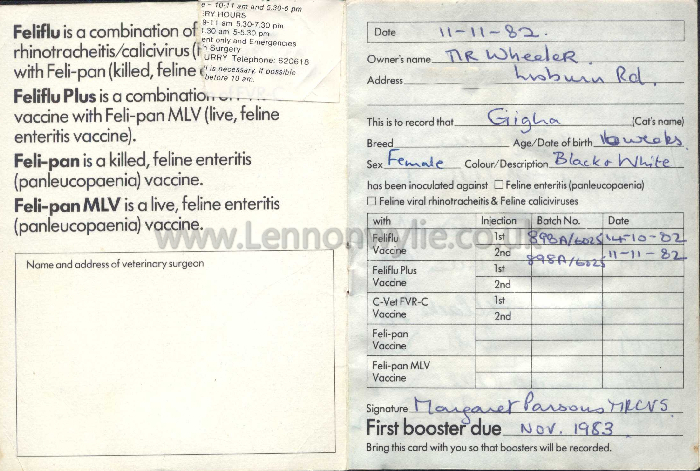 Feliflu is a combination of
rhinotracheitis/calicivirus (
with Feli-pan (killed, feline
Feliflu Plus is a combination
vaccine with Feli-pan MLV (live, feline
enteritis vaccine).
Feli-pan is a killed, feline enteritis
(panleucopaenia) vaccine.
Feli-pan MLV is a live, feline enteritis
(panleucopaenia) vaccine.
- 10-11 am and 5.30-6 pm
ERY HOURS
9-11 am 5.30-7.30 pm
1.30 am 5-5.30 pm
ent only and Emergencies
Surgery
URRY Telephone: 520618
is necessary, if possible
before 10 am.
Name and address of veterinary surgeon
Date 11-11-82.
Owner's name MR Wheeler.
Address Lisburn Rd.
This is to record that Gigha (Cat's name)
Breed Age/Date of birth 16 weeks
Sex Female Colour/Description Black & White
has been inoculated against Feline enteritis (panleucopaenia)
Feline viral rhinotracheitis & Feline caliciviruses
with Injection Batch No. Date
Feliflu 1st 898A/6025 14-10-82
Vaccine 2nd 898A/6025 11-11-82
Feliflu Plus 1st
Vaccine 2nd
C-Vet FVR-C 1st
Vaccine 2nd
Feli-pan
Vaccine
Feli-pan MLV
Vaccine
Signature Margaret Parsons MRCVS
First booster due NOV. 1983
Bring this card with you so that boosters will be recorded.
www.Lennonwylie.co.uk